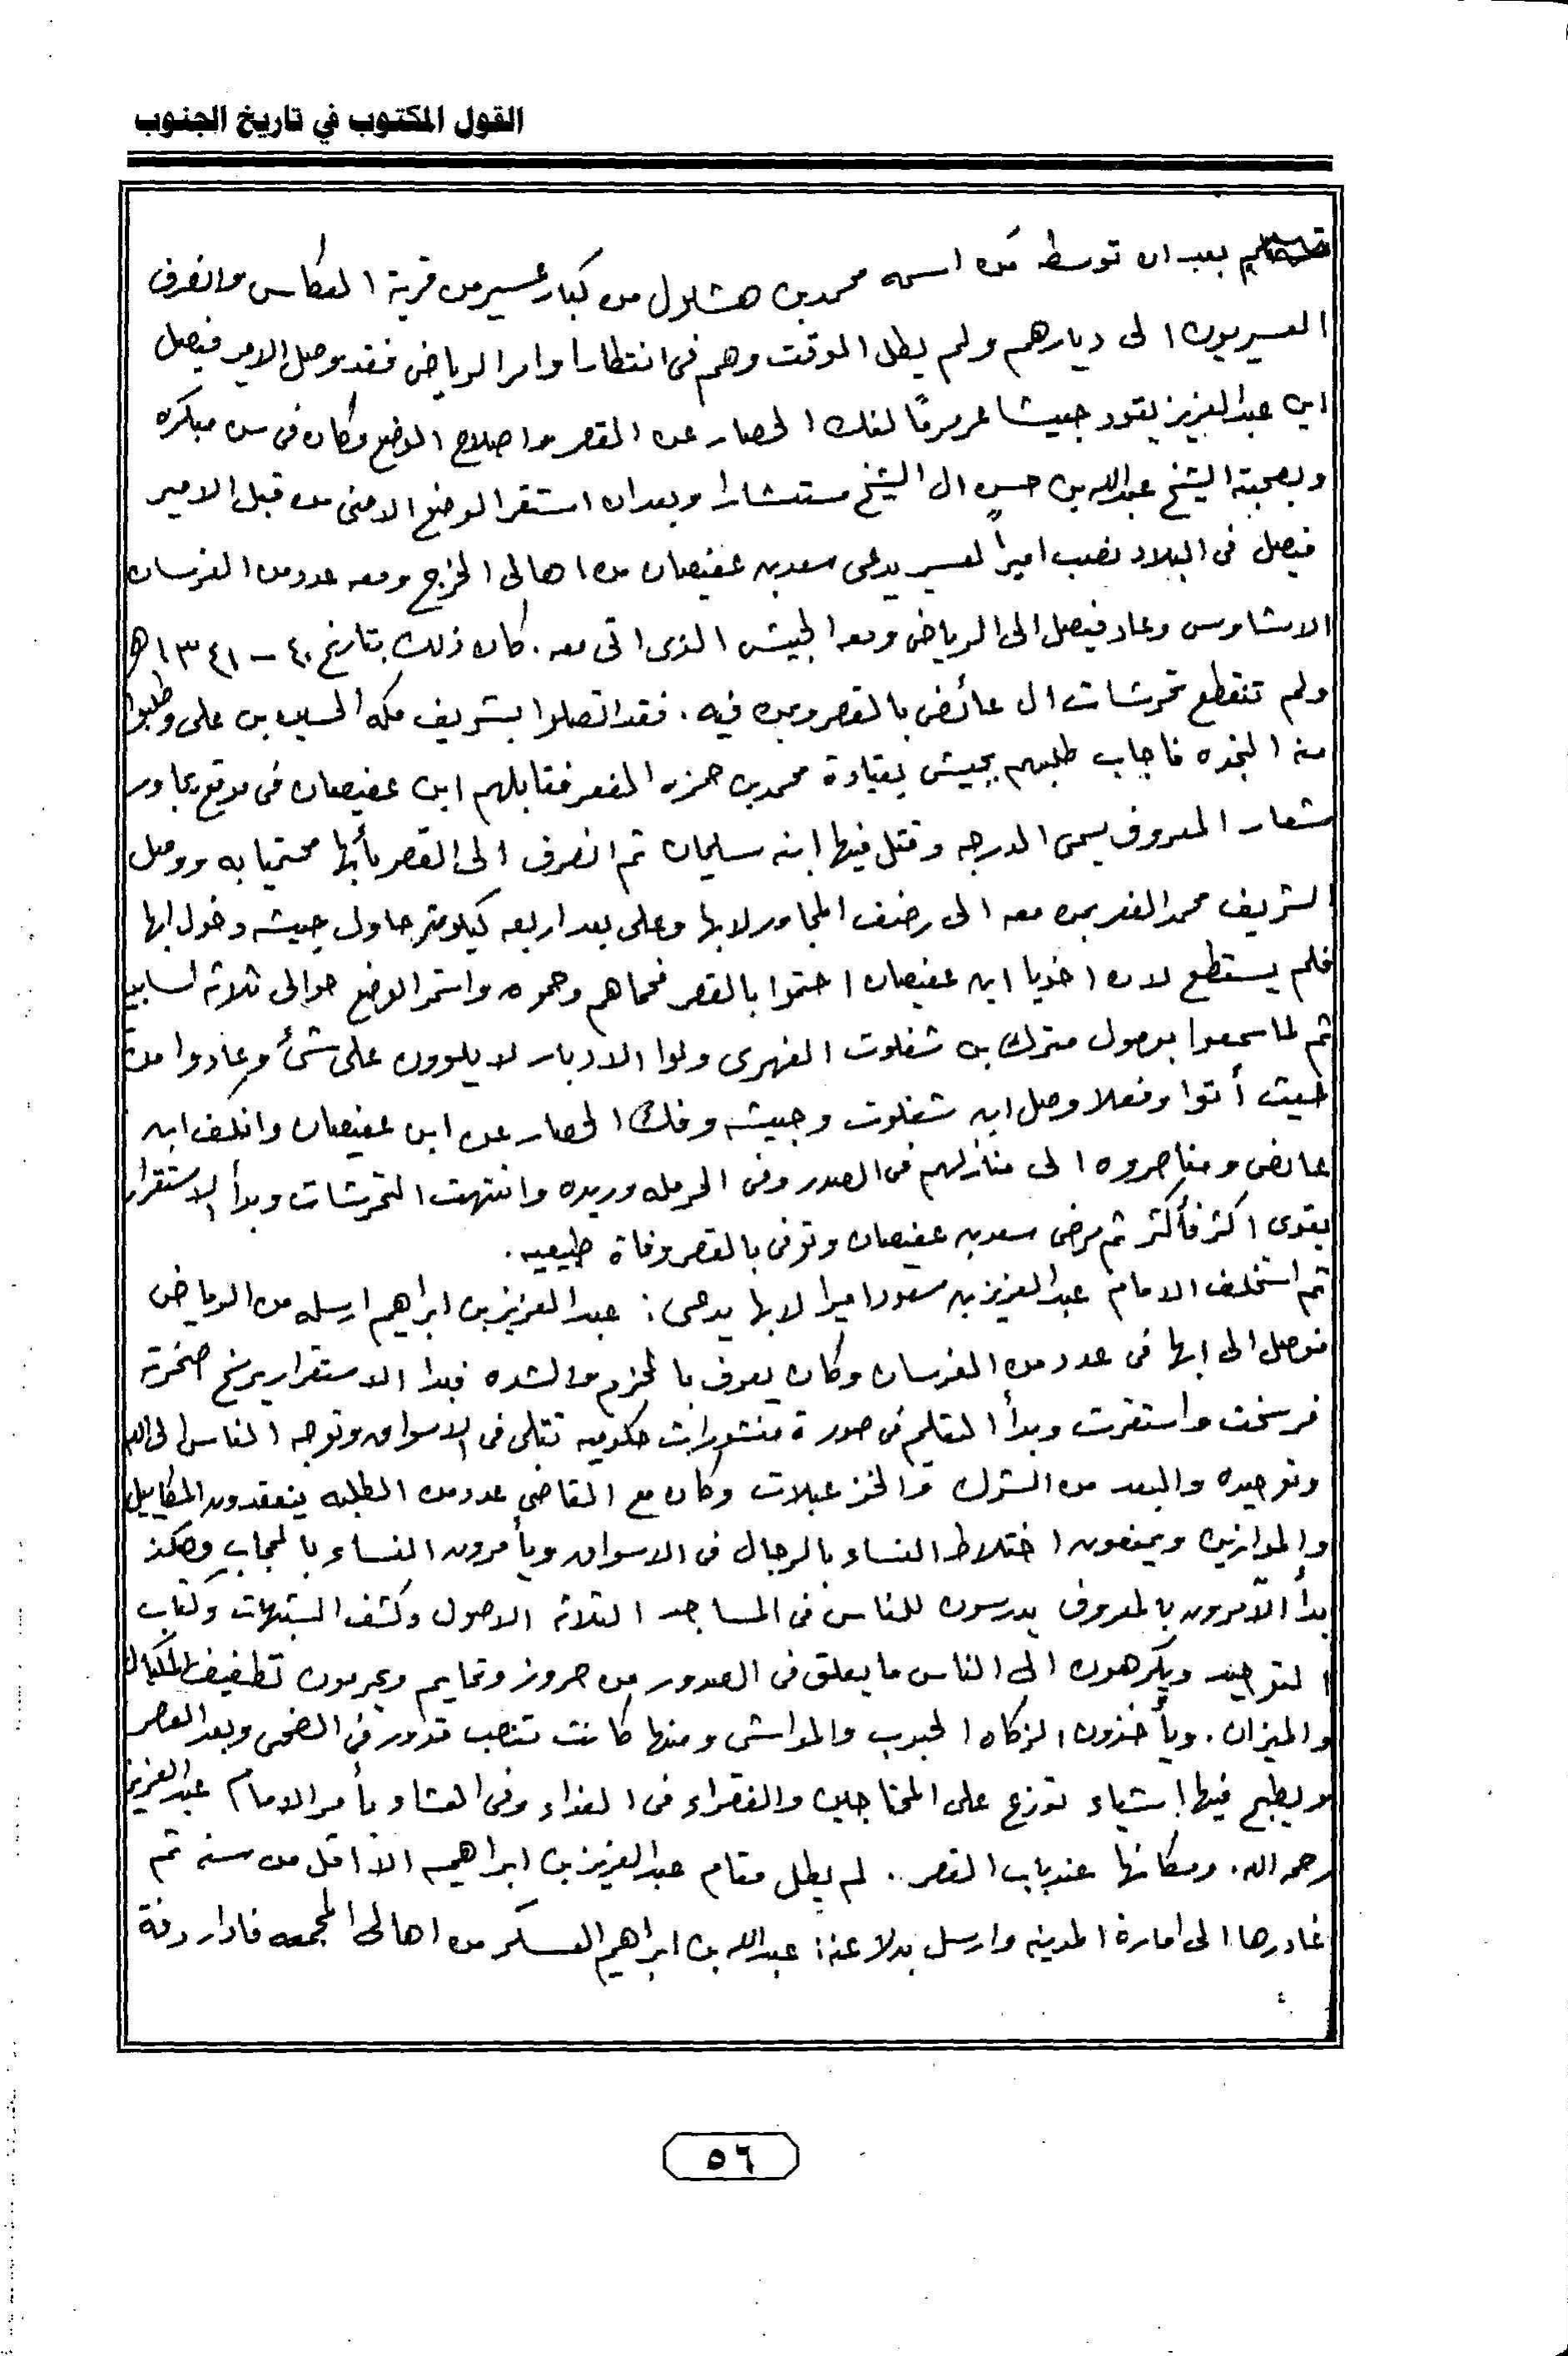 القول المكتوب في تاريخ الجنوب
بعد ان توسط من اسمه محمد بن هشلول من كبار عسير من قرية العكاس وانصرف
العسيريون الى ديارهم ولم يطل الوقت وهم فى انتظار اوامر الرياض فقد وصل الامير فيصل
ابن عبدالعزيز يقود جيشا عرمرمًا لفك الحصار عن القصر واصلاح الوضع وكان فى سن مبكره
وبصحبته الشيخ عبدالله بن حسن ال الشيخ مستشارا وبعد ان استقر الوضع الامنى من قبل الامير
فيصل فى البلاد نصب اميراً لعسير يدعى سعد بن عفيصان من اهالى الخرج ومعه عدد من الفرسان
الاشاوس وعاد فيصل الى الرياض ومعه الجيش الذى اتى معه. كان ذلك بتاريخ ٤٠ - ١٣٤١هـ
ولم تنقطع تحرشات ال عائض بالقصر ومن فيه. فقد اتصلوا بشريف مكه الحسين بن على وطلبوا
منه النجده فاجاب طلبهم بجيش بقيادة محمد بن حمزه الفعر فقابلهم ابن عفيصان فى موقع يجاور
شعار المعروف يسمى الدرجه وقتل فيها ابنه سليمان ثم انصرف الى القصر بأبها محتميا به ووصل
الشريف محمد الفعر بمن معه الى رضف المجاور لابها وعلى بعد اربعه كيلومتر حاول جيشه دخول ابها
فلم يستطع لان اخويا ابن عفيصان احتموا بالقصر فحماهم وحموه واستمر الوضع حوالى ثلاثه اسابيع
ثم لما سمعوا بوصول مترك بن شفلوت الفهرى ولوا الادبار لا يلوون على شئ وعادوا من
حيث أتوا وفعلا وصل ابن شفلوت وجيشه وفك الحصار عن ابن عفيصان وانكف ابن
عائض ومناصروه الى منازلهم فى الصدر وفى الحرمله وريده وانتهت التحرشات وبدأ الاستقرار
يقوى اكثر فأكثر ثم مرض سعد بن عفيصان وتوفى بالقصر وفاة طبيعيه.
ثم استخلف الامام عبدالعزيز بن سعود اميرا لابها يدعى: عبدالعزيز بن ابراهيم ارسله من الرياض
فوصل الى ابها فى عدد من الفرسان وكان يعرف بالحزم والشده فبدا الاستقرار يرسخ صخرته
فرسخت واستقرت وبدأ التعليم فى صورة منشورات حكوميه تتلى فى الاسواق وتوجه الناس الى الله
وتوحيده والبعد من الشرك والخزعبلات وكان مع القاضى عدد من الطلبه يتفقدون المكاييل
والموازين ويمنعون اختلاط النساء بالرجال فى الاسواق ويأمرون النساء بالحجاب وهكذ
بدأ الآمرون بالمعروف يدرسون للناس فى المساجد الثلاثه الاصول وكشف الشبهات وكتاب
التوحيد ويكرهون الى الناس ما يعلق فى الصدور من حروز وتمايم ويحرمون تطفيف المكيال
والميزان. ويأخذون الزكاه الحبوب والمواشى ومنها كانت تنصب قدور فى الضحى وبعد العصر
ويطبخ فيها اشياء توزع على المحتاجين والفقراء فى الغداء وفى العشاء بأمر الامام عبدالعزيز
رحمه الله. ومكانها عند باب القصر. لم يطل مقام عبدالعزيز بن ابراهيم الا اقل من سنه ثم
غادرها الى امارة المدينه وارسل بدلا عنه: عبدالله بن ابراهيم العسكر من اهالى المجمعه فادار دفة
٥٦